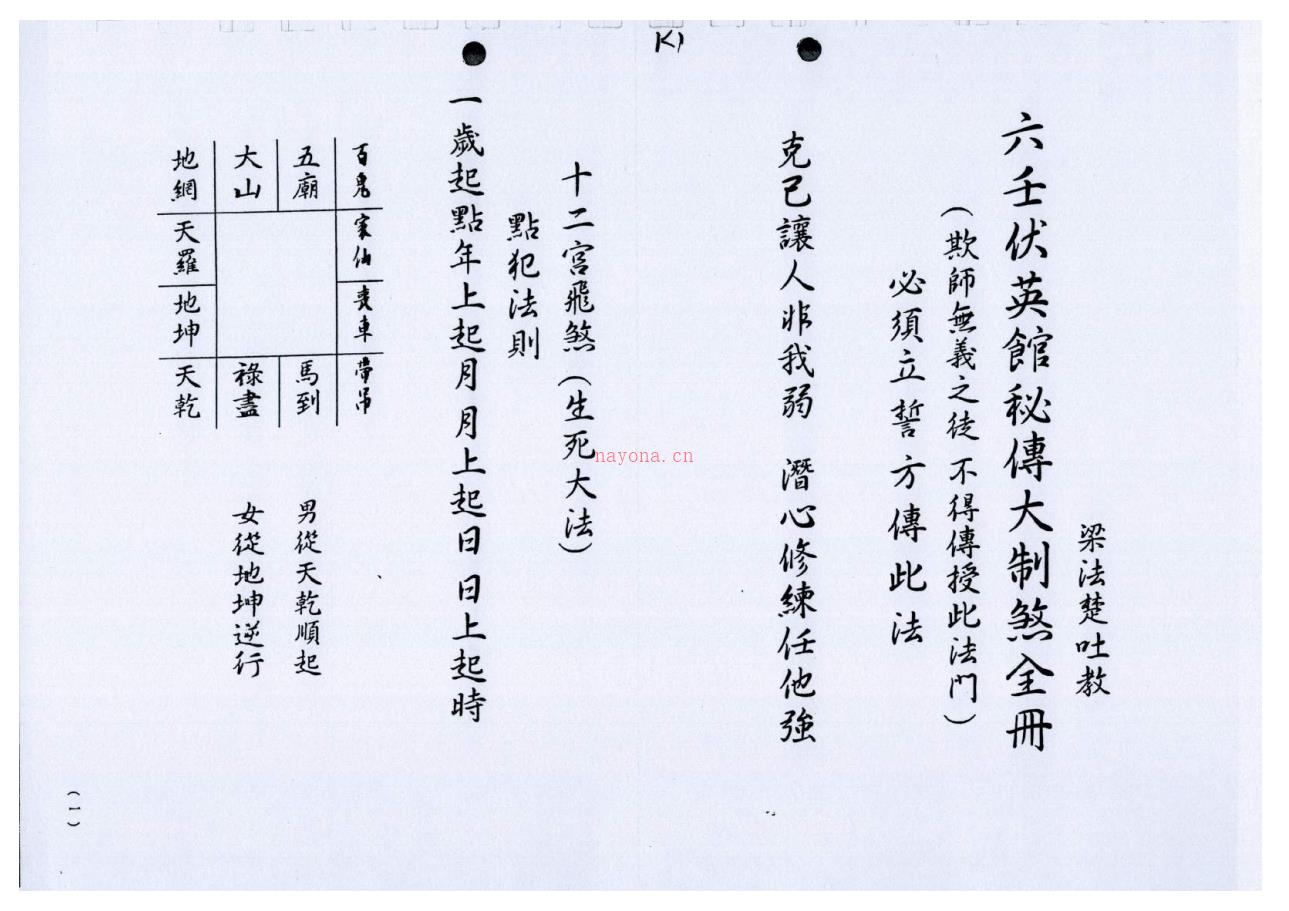 K1
梁法楚吐教
六壬伏英館秘傳大制煞全冊
(欺師無義之徒不得傳授此法門)
必須立誓方傳此法
克己讓人非我弱 潛心修練任他強
十二宮飛煞(生死大法)
點犯法則
一歲起點年上起月月上起日日上起時
百鬼 家仙 喪車 帶吊
五廟 馬到
大山 祿盡
地網 天羅 地坤 天乾
男從天乾順起
女從地坤逆行
(一)
nayona.cn